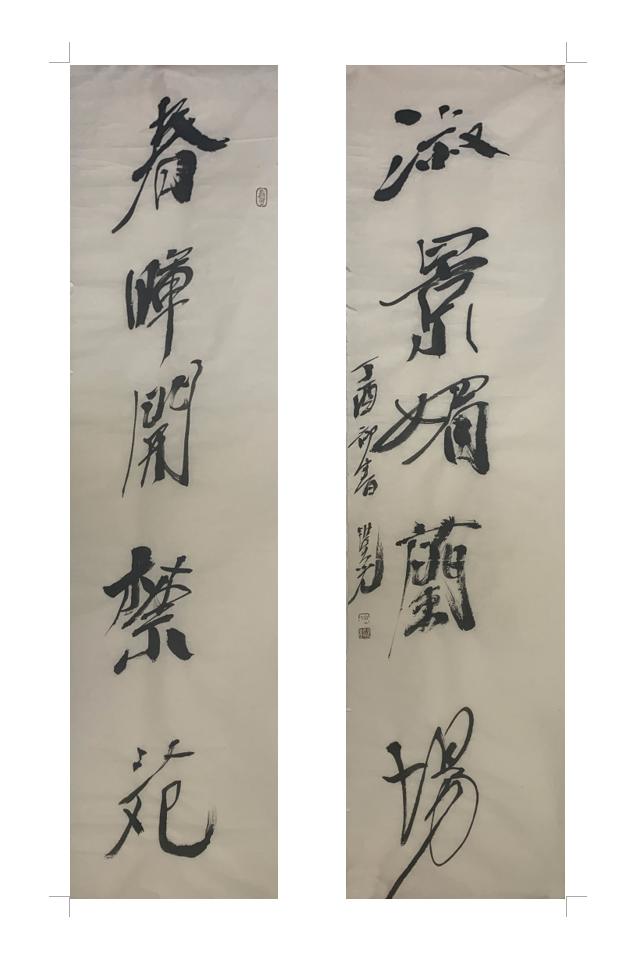 春暉開禁苑
淑景媚蘭場
丁酉